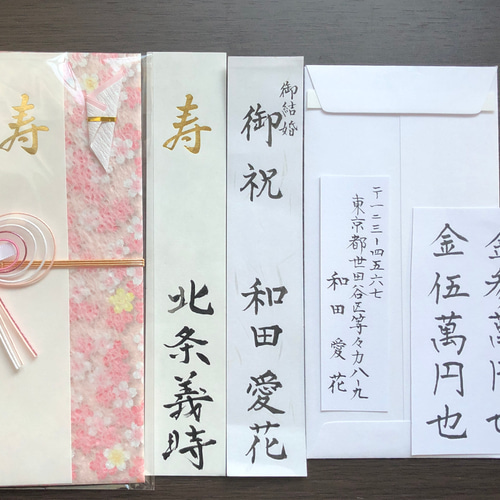 寿
寿
北条義時
御結婚
御祝
和田愛花
〒一二三-四五六七
東京都世田谷区等々力八-九
和田愛花
金伍萬円也
金参萬円也